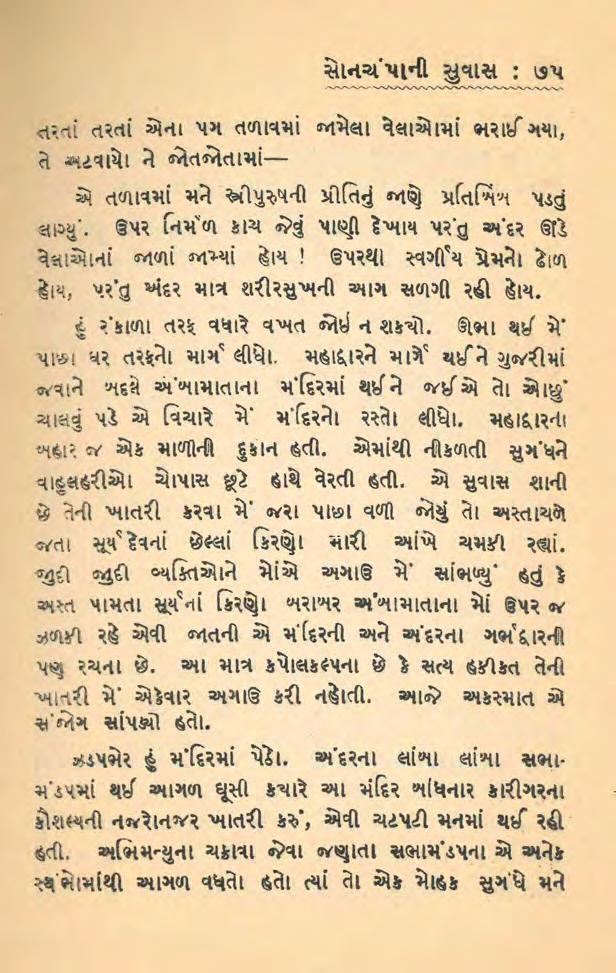 સોનચંપાની સુવાસ : ૭૫
તરતાં તરતાં એના પગ તળાવમાં જામેલા વેલાઓમાં ભરાઈ ગયા,
તે અટવાયો ને જોતજોતામાં—
એ તળાવમાં મને સ્ત્રીપુરુષની પ્રીતિનું જાણે પ્રતિબિંબ પડતું
લાગ્યું. ઉપર નિર્મળ કાચ જેવું પાણી દેખાય પરંતુ અંદર ઊંડે
વેલાઓનાં જાળાં જામ્યાં હોય ! ઉપરથી સ્વર્ગીય પ્રેમનો ઢોળ
હોય, પરંતુ અંદર માત્ર શરીરસુખની આગ સળગી રહી હોય.
હું રંકાળા તરફ વધારે વખત જોઈ ન શકયો. ઊભા થઈ મેં
પાછા ઘર તરફનો માર્ગ લીધો. મહાદ્વારને માર્ગે થઈને ગુજરીમાં
જવાને બદલે અંબામાતાના મંદિરમાં થઈને જઈએ તો ઓછું
ચાલવું પડે એ વિચારે મેં મંદિરનો રસ્તો લીધો. મહાદ્વારના
બહાર જ એક માળીની દુકાન હતી. એમાંથી નીકળતી સુગંધને
વાયુલહરીઓ ચોપાસ છૂટે હાથે વેરતી હતી. એ સુવાસ શાની
છે તેની ખાતરી કરવા મેં જરા પાછા વળી જોયું તો અસ્તાચળે
જતા સૂર્યદેવનાં છેલ્લાં કિરણો મારી આંખે ચમકી રહ્યાં.
જુદી જુદી વ્યક્તિઓને મોંએ અગાઉ મેં સાંભળ્યું હતું કે
અસ્ત પામતા સૂર્યનાં કિરણો બરાબર અંબામાતાના મોં ઉપર જ
ઝળકી રહે એવી જાતની એ મંદિરની અને અંદરના ગર્ભદ્વારની
પણ રચના છે. આ માત્ર કપોલકલ્પના છે કે સત્ય હકીકત તેની
ખાતરી મેં એકેવાર અગાઉ કરી નહોતી. આજે અકસ્માત એ
સંજોગ સાંપડ્યો હતો.
ઝડપભેર હું મંદિરમાં પેઠો. અંદરના લાંબા લાંબા સભા-
મંડપમાં થઈ આગળ ઘૂસી કયારે આ મંદિર બાંધનાર કારીગરના
કૌશલ્યની નજરોનજર ખાતરી કરું, એવી ચટપટી મનમાં થઈ રહી
હતી. અભિમન્યુના ચક્રાવા જેવા જણાતા સભામંડપના એ અનેક
સ્થંભોમાંથી આગળ વધતો હતો ત્યાં તો એક મોહક સુગંધે મને